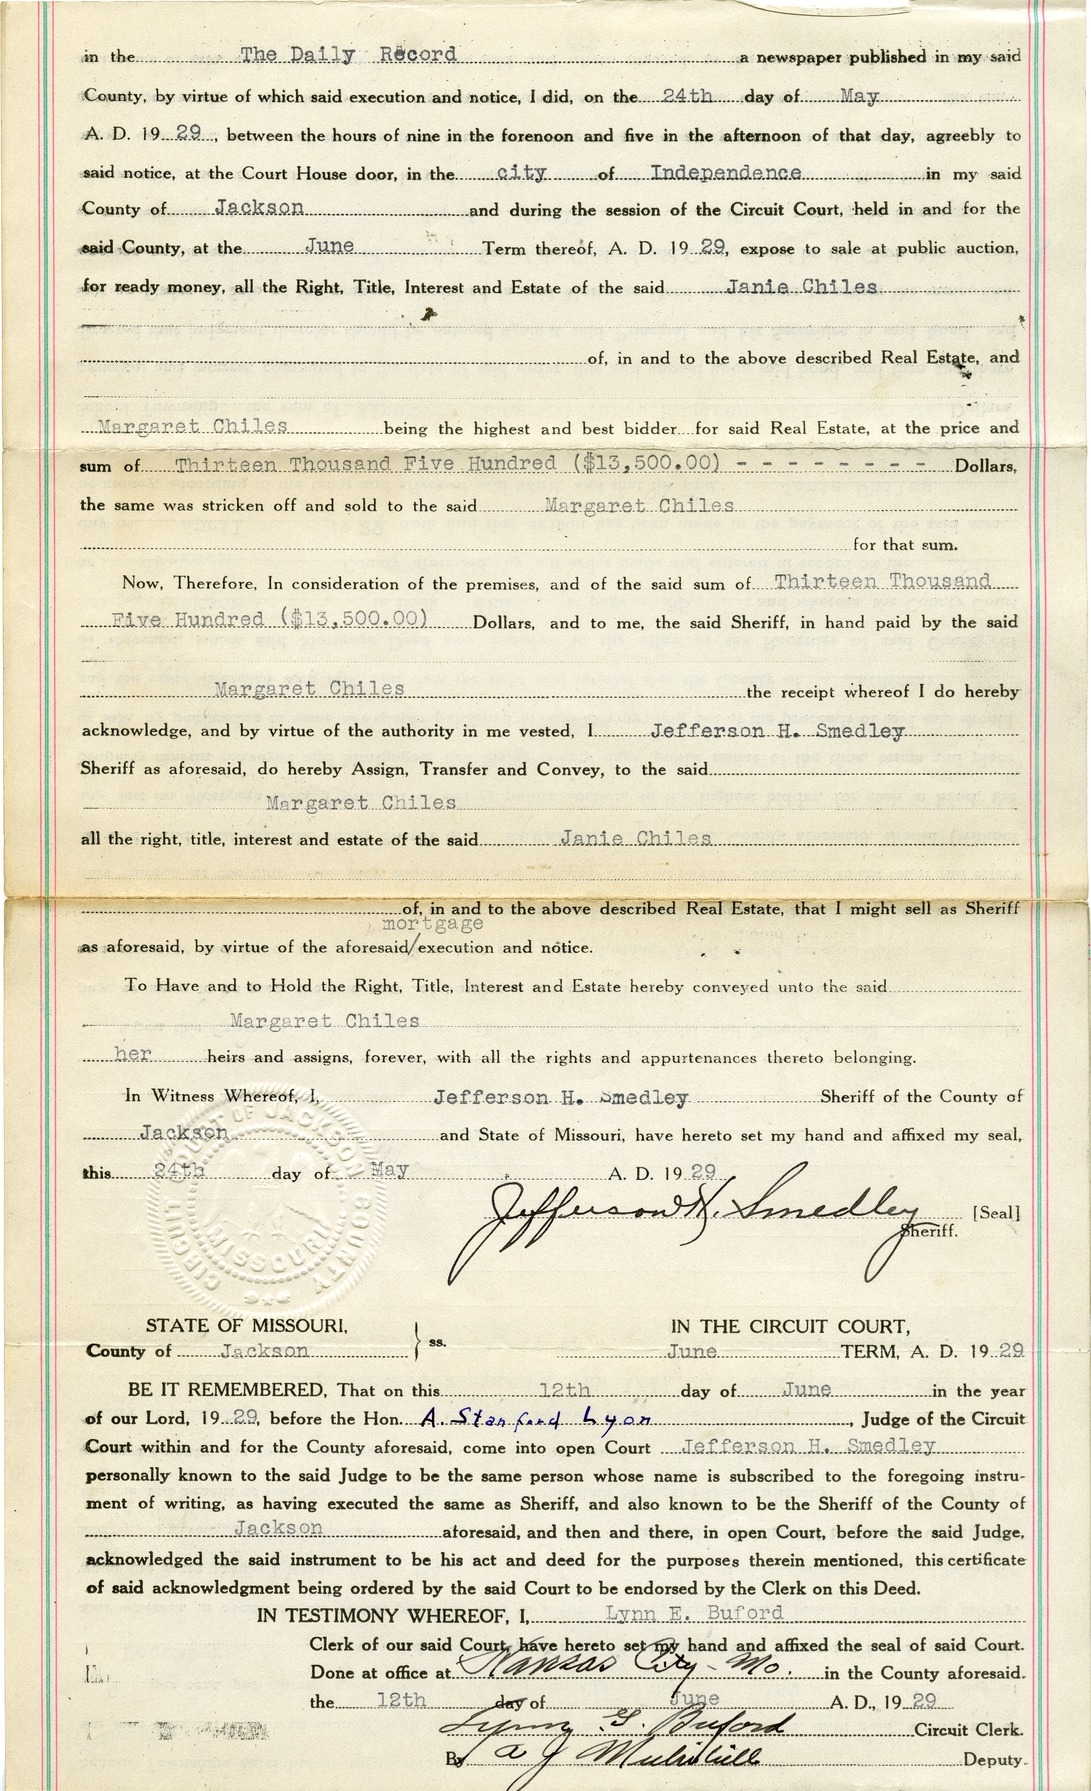 in the The Daily Record a newspaper published in my said
County, by virtue of which said execution and notice, I did, on the 24th day of May
A. D. 19 29, between the hours of nine in the forenoon and five in the afternoon of that day, agreebly to
said notice, at the Court House door, in the city of Independence in my said
County of Jackson and during the session of the Circuit Court, held in and for the
said County, at the June Term thereof, A. D. 19 29, expose to sale at public auction,
for ready money, all the Right, Title, Interest and Estate of the said Janie Chiles
of, in and to the above described Real Estate, and
Margaret Chiles being the highest and best bidder for said Real Estate, at the price and
sum of Thirteen Thousand Five Hundred ($13,500.00) - - - - - - - - Dollars,
the same was stricken off and sold to the said Margaret Chiles
for that sum.
Now, Therefore, In consideration of the premises, and of the said sum of Thirteen Thousand
Five Hundred ($13,500.00) Dollars, and to me, the said Sheriff, in hand paid by the said
Margaret Chiles the receipt whereof I do hereby
acknowledge, and by virtue of the authority in me vested, I Jefferson H. Smedley
Sheriff as aforesaid, do hereby Assign, Transfer and Convey, to the said
Margaret Chiles
all the right, title, interest and estate of the said Janie Chiles
of, in and to the above described Real Estate, that I might sell as Sheriff
mortgage
as aforesaid, by virtue of the aforesaid/execution and notice.
To Have and to Hold the Right, Title, Interest and Estate hereby conveyed unto the said
Margaret Chiles
her heirs and assigns, forever, with all the rights and appurtenances thereto belonging.
In Witness Whereof, I, Jefferson H. Smedley Sheriff of the County of
Jackson and State of Missouri, have hereto set my hand and affixed my seal,
this 24th day of May A. D. 19 29
Jefferson H. Smedley [Seal]
Sheriff.
CIRCUIT COURT OF JACKSON COUNTY
MISSOURI
STATE OF MISSOURI, } ss. IN THE CIRCUIT COURT,
County of Jackson June TERM, A. D. 19 29
BE IT REMEMBERED, That on this 12th day of June in the year
of our Lord, 19 29, before the Hon. A. Stanford Lyon, Judge of the Circuit
Court within and for the County aforesaid, come into open Court Jefferson H. Smedley
personally known to the said Judge to be the same person whose name is subscribed to the foregoing instru-
ment of writing, as having executed the same as Sheriff, and also known to be the Sheriff of the County of
Jackson aforesaid, and then and there, in open Court, before the said Judge,
acknowledged the said instrument to be his act and deed for the purposes therein mentioned, this certificate
of said acknowledgment being ordered by the said Court to be endorsed by the Clerk on this Deed.
IN TESTIMONY WHEREOF, I, Lynn E. Buford
Clerk of our said Court, have hereto set my hand and affixed the seal of said Court.
Done at office at Kansas City - Mo. in the County aforesaid.
the 12th day of June A. D., 19 29
Lynn E. Buford Circuit Clerk.
By A J Deputy.